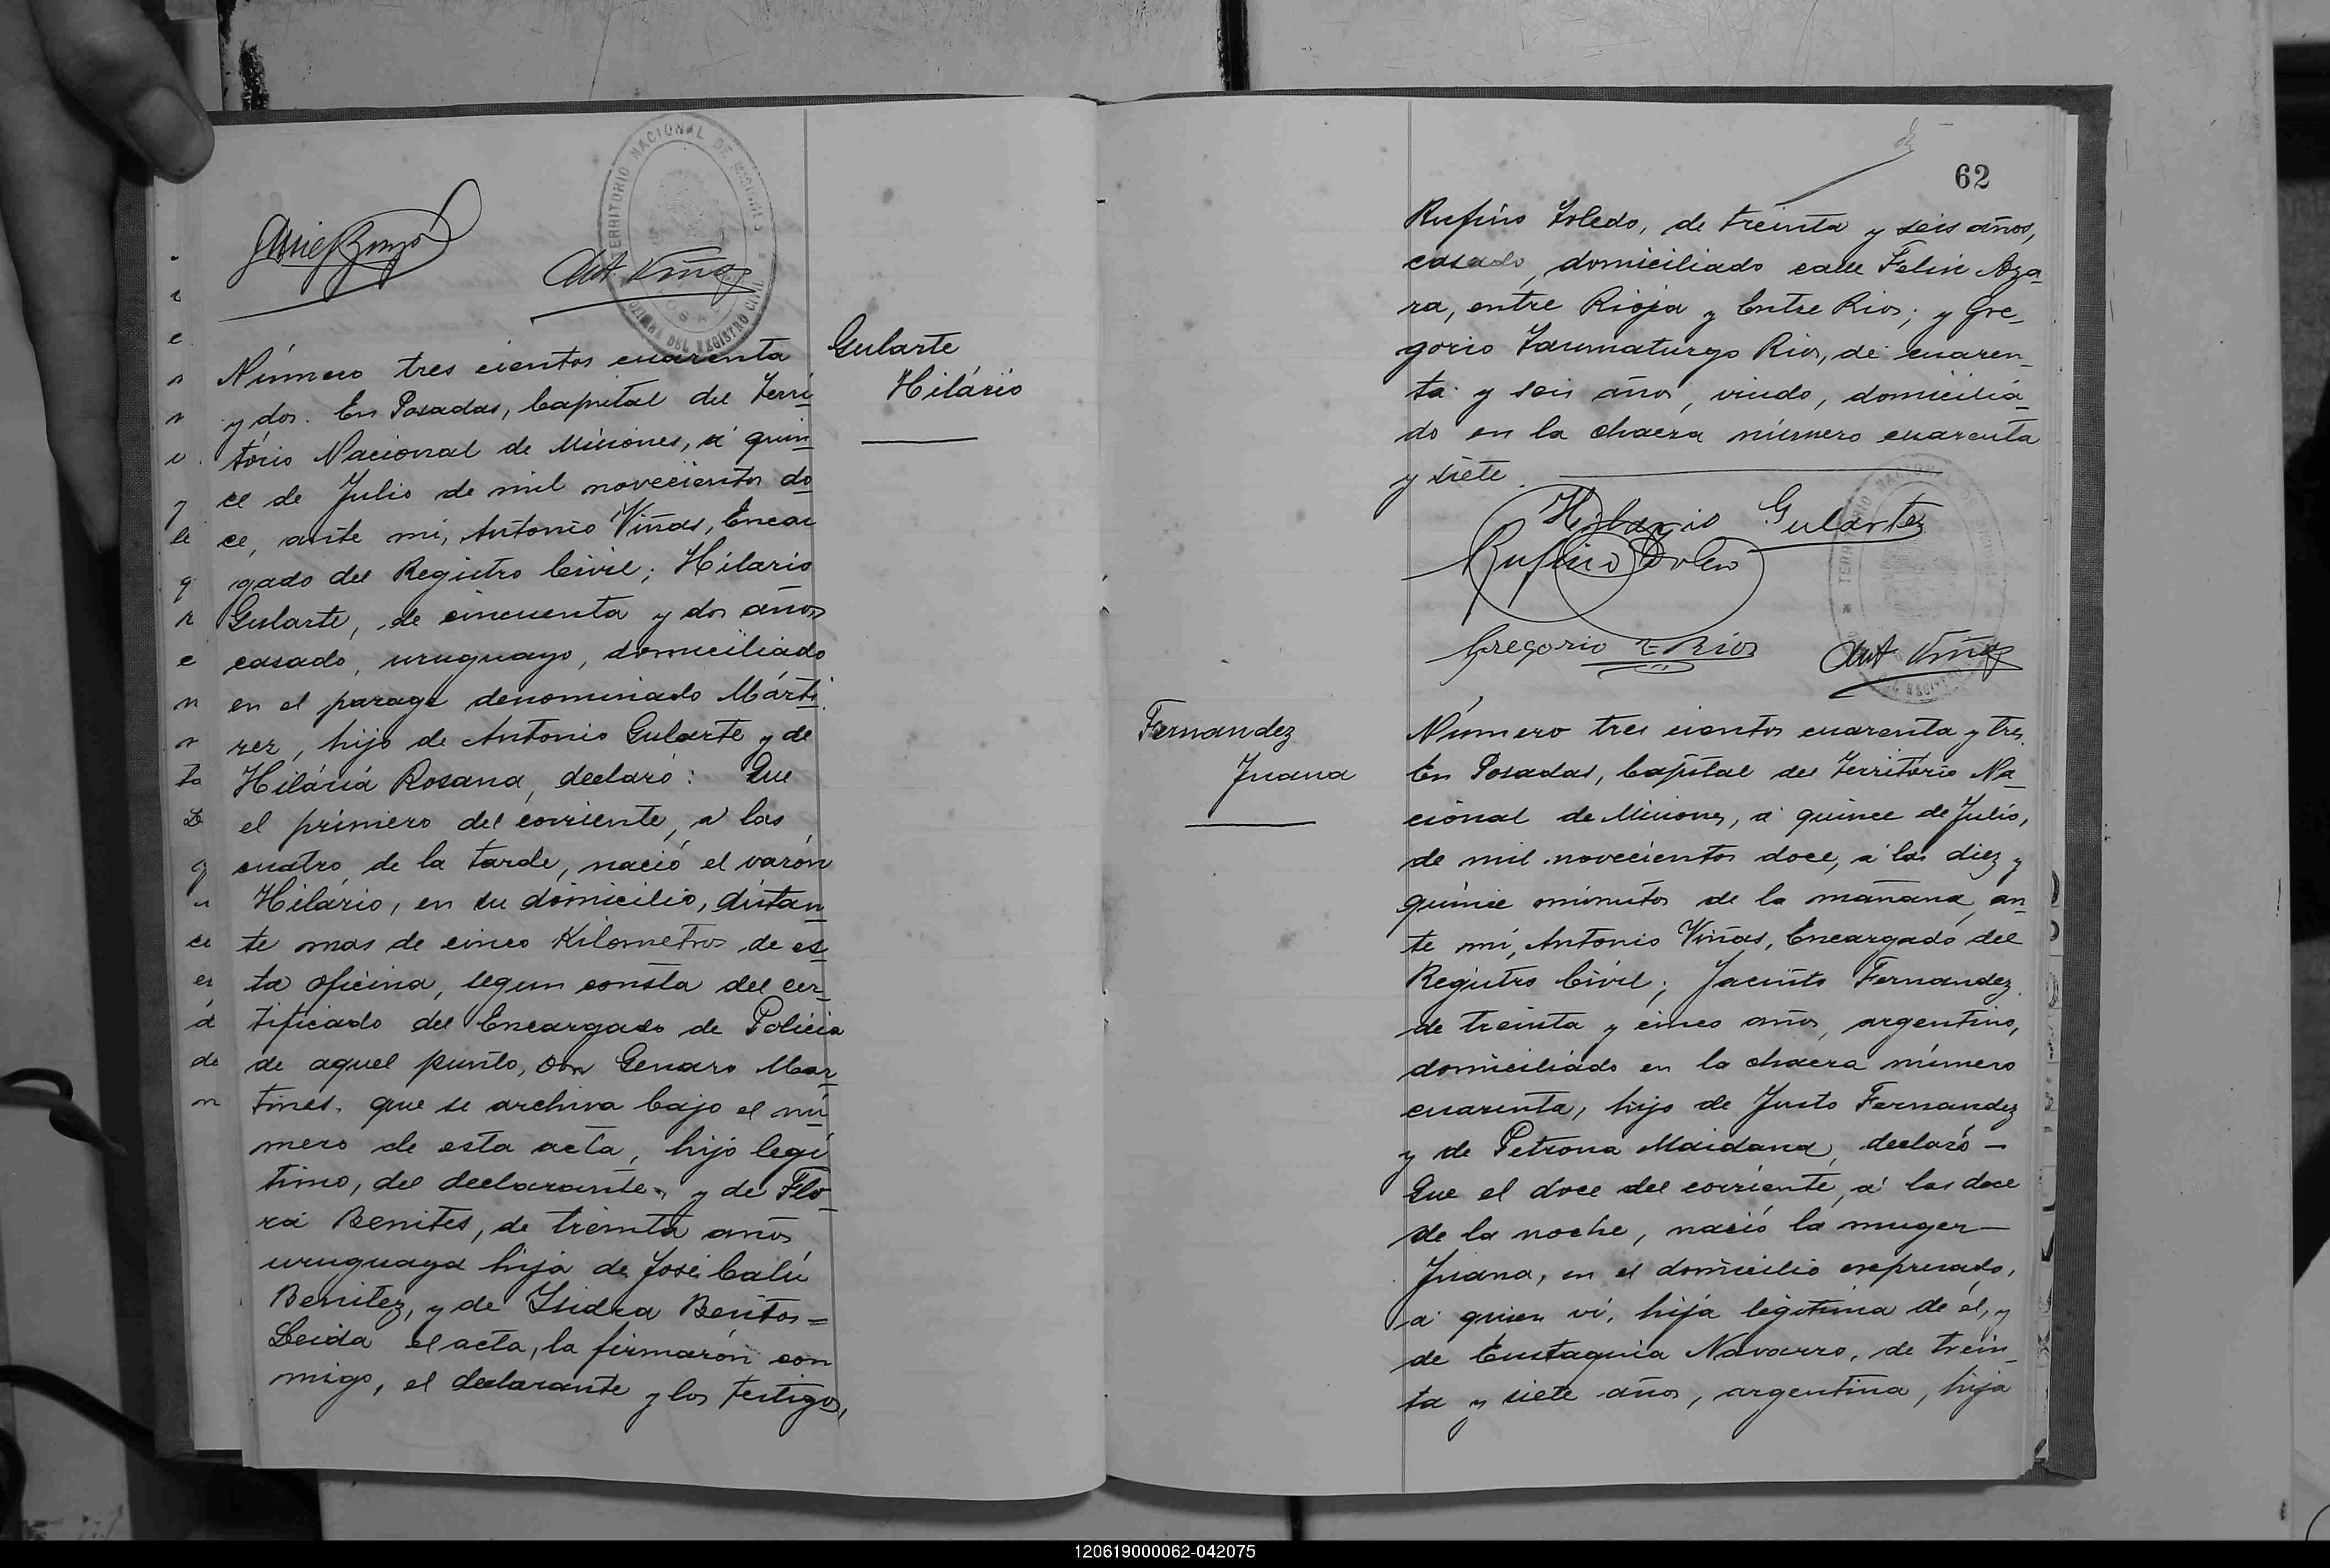 TERRITORIO NACIONAL DE MISIONES
OFICINA DEL REGISTRO CIVIL
Ant Viñas
Gularte
Hilário
Número tres cientos cuarenta
y dos. En Posadas, Capital del Terri
tório Nacional de Misiones, á quin
ce de Julio de mil novecientos do
ce, ante mi, Antonio Viñas, Encar
gado del Registro Civil; Hilario
Gularte, de cincuenta y dos años
casado, uruguayo, domiciliado
en el parage denominado Márti
rez, hijo de Antonio Gularte y de
Hilária Rosana, declaró: Que
el primero del corriente, a las
cuatro de la tarde, nació el varón
Hilário, en su domicilio, distan
te mas de cinco Kilometros de es
ta oficina, segun consta del cer
tificado del Encargado de Policia
de aquel punto, Don Genaro Mar
tines, que se archiva bajo el nú
mero de esta acta, hijo legi
timo, del declarante, y de Flo
ra Benites, de treinta años,
uruguaya hija de José Calú
Benitez, y de Isidra Benitos=
Leida el acta, la firmarón con
migo, el declarante y los testigos,
62
Rufino Toledo, de treinta y seis años,
casado, domiciliado calle Felix Aza
ra, entre Rioja y Entre Rios; y Gre_
gorio Taumaturgo Rios, de cuaren_
ta y seis años, viudo, domicilia_
do en la chacra número cuarenta
y siete.
Hilario Gulartez
Rufino Toledo
Gregorio T Rios
Ant Viñas
Fernandez
Juana
Número tres cientos cuarenta y tres.
En Posadas, Capital del Território Na_
cional de Misiones, á quince de Julio,
de mil novecientos doce, á las diez y
quince minutos de la mañana, an_
te mi, Antonio Viñas, Encargado del
Registro Civil; Jacinto Fernandez,
de treinta y cinco años, argentino,
domiciliado en la chacra número
cuarenta, hijo de Justo Fernandez
y de Petrona Maidana, declaró—
Que el doce del corriente, á las doce
de la noche, nació la muger—
Juana, en el domicilio expresado,
a quien vi, hija legitima de él, y
de Eustaquia Navarro, de trein_
ta y siete años, argentina, hija
120619000062-042075